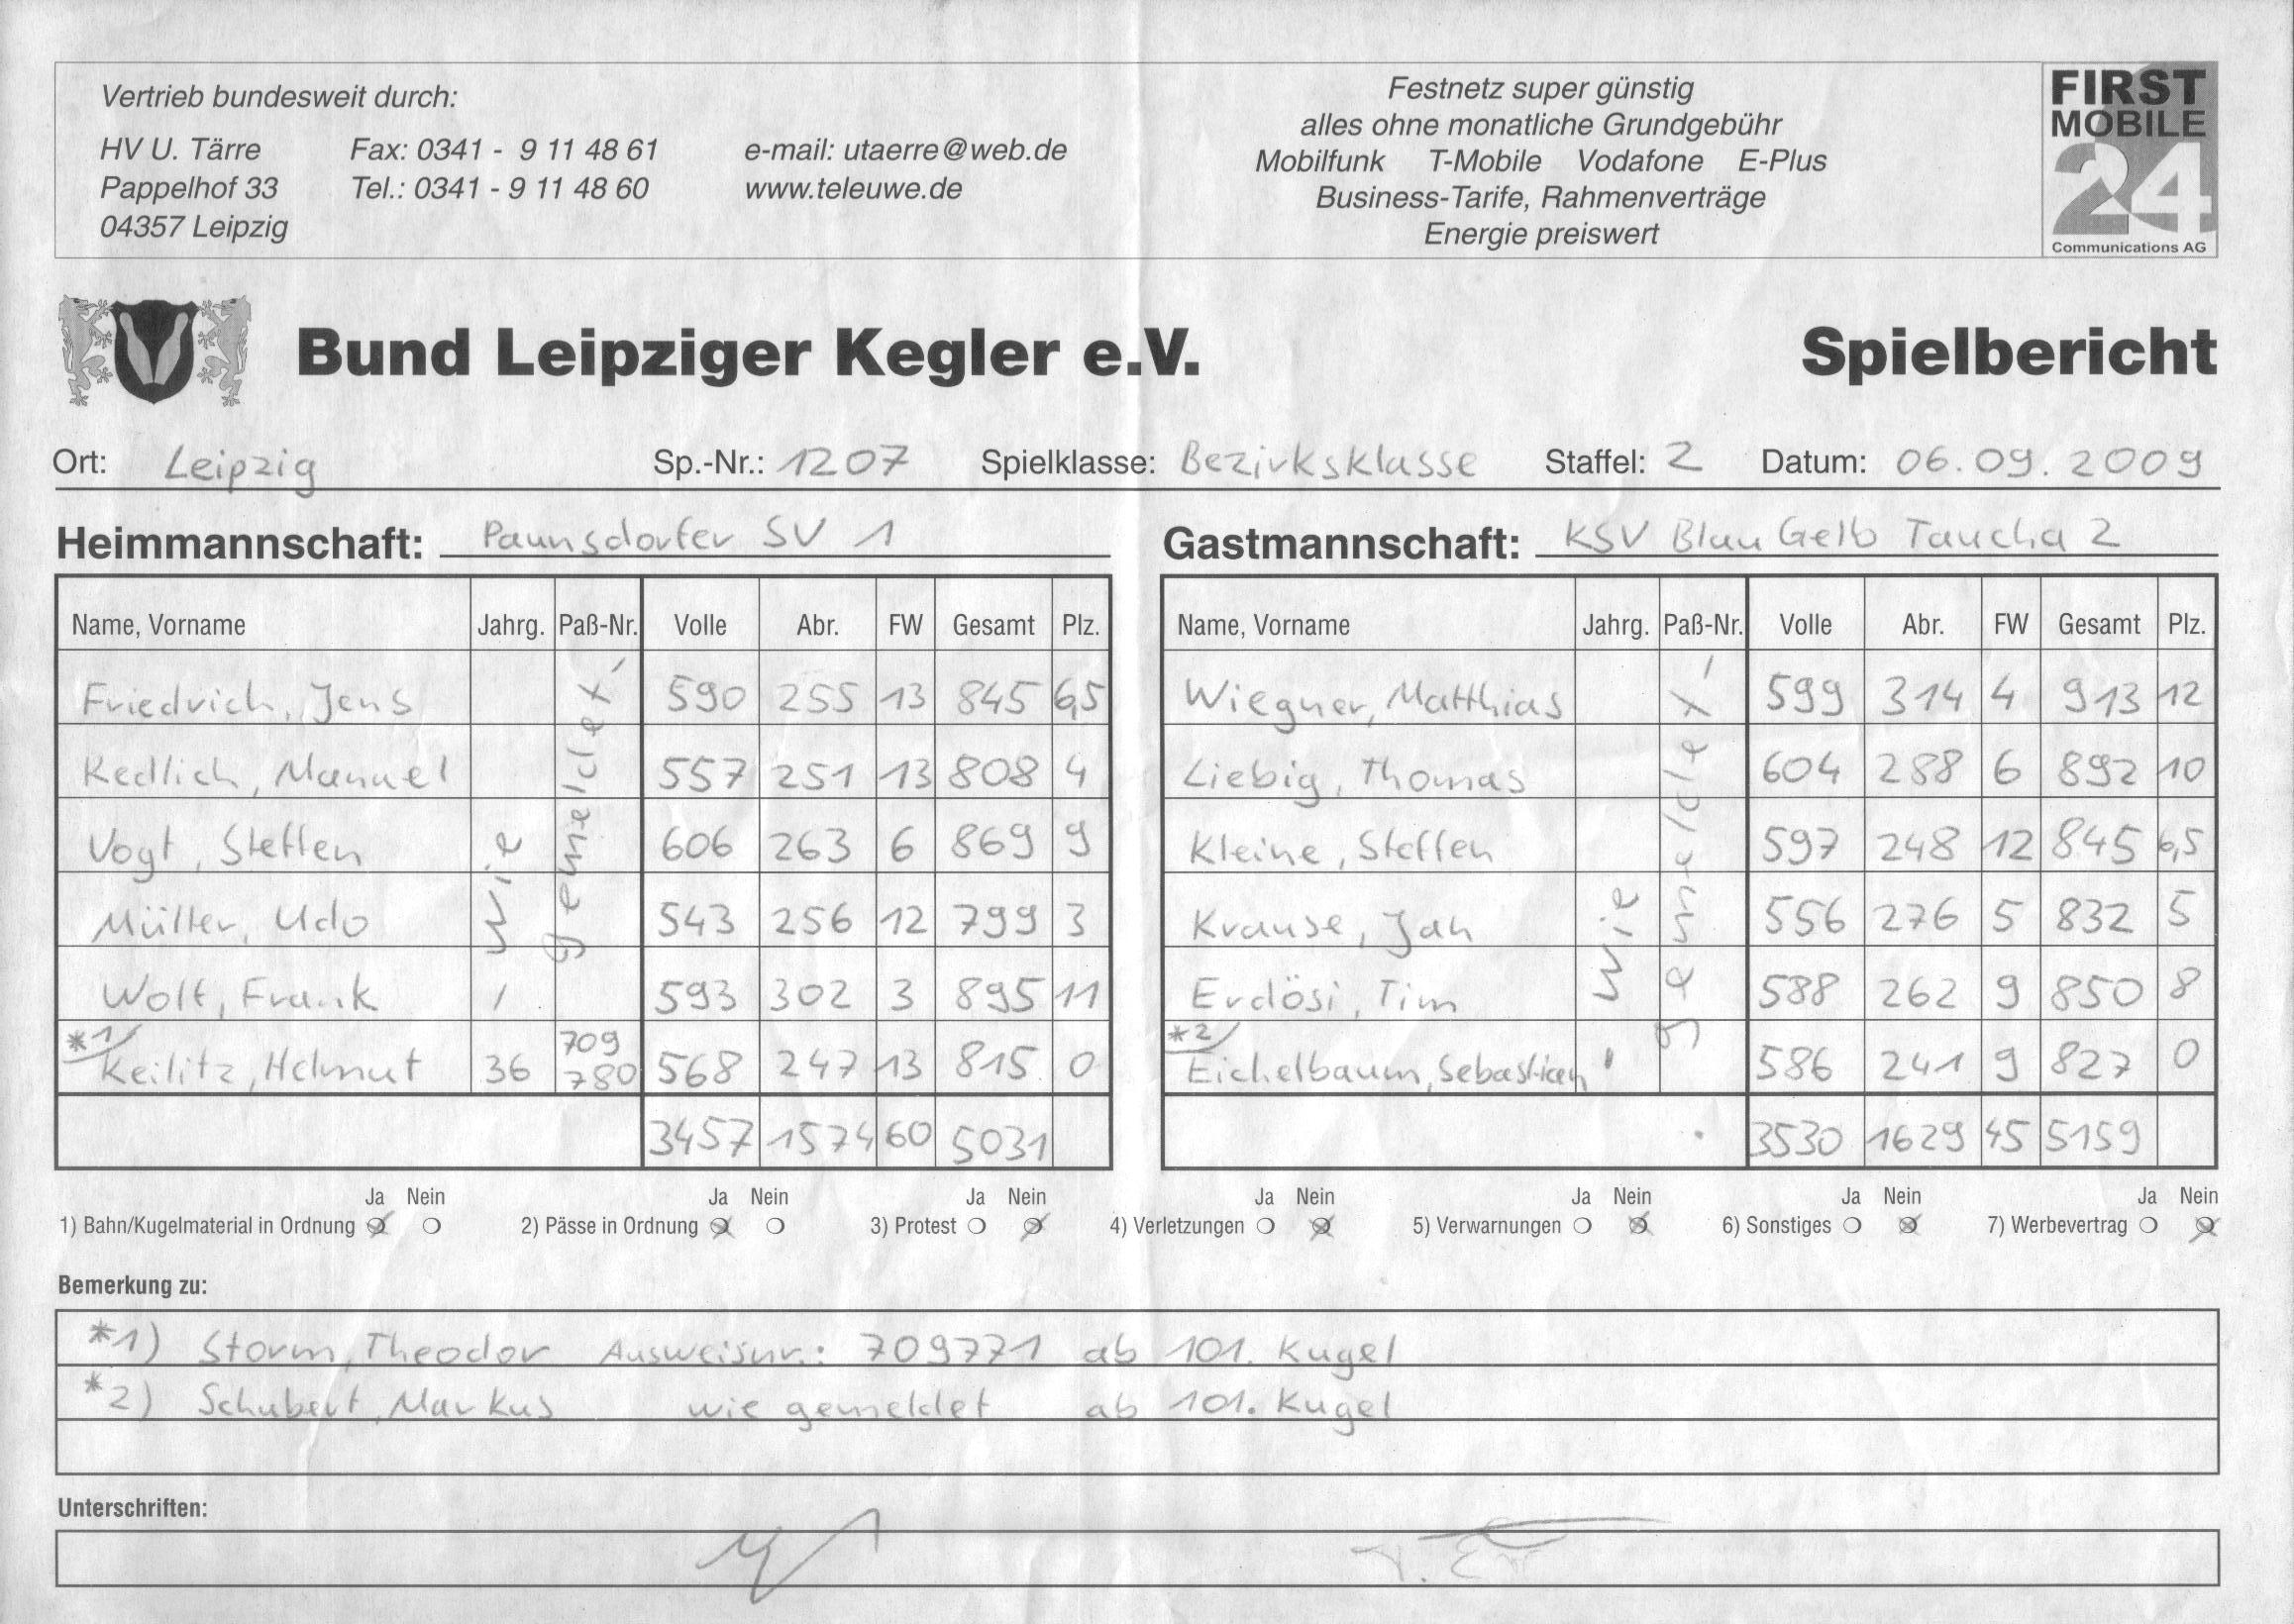 Vertrieb bundesweit durch:
HV U. Tärre Fax: 0341 - 9 11 48 61 e-mail: utaerre@web.de
Pappelhof 33 Tel.: 0341 - 9 11 48 60 www.teleuwe.de
04357 Leipzig
Festnetz super günstig
alles ohne monatliche Grundgebühr
Mobilfunk T-Mobile Vodafone E-Plus
Business-Tarife, Rahmenverträge
Energie preiswert
FIRST
MOBILE
24
Communications AG
Bund Leipziger Kegler e.V. Spielbericht
Ort: Leipzig Sp.-Nr.: 1207 Spielklasse: Bezirksklasse Staffel: 2 Datum: 06.09.2009
Heimmannschaft: Paunsdorfer SV 1
Name, Vorname Jahrg. Paß-Nr. Volle Abr. FW Gesamt Plz.
Friedrich, Jens 590 255 13 845 6,5
Redlich, Manuel 557 251 13 808 4
Vogt, Steffen 606 263 6 869 9
Müller, Udo 543 256 12 799 3
Wolf, Frank 593 302 3 895 11
*1) Keilitz, Helmut 36 709 780 568 247 13 815 0
wie gemeldet
3457 1574 60 5031
Gastmannschaft: KSV Blau Gelb Taucha 2
Name, Vorname Jahrg. Paß-Nr. Volle Abr. FW Gesamt Plz.
Wiegner, Matthias 599 314 4 913 12
Liebig, Thomas 604 288 6 892 10
Kleine, Steffen 597 248 12 845 6,5
Krause, Jan 556 276 5 832 5
Erdösi, Tim 588 262 9 850 8
*2) Eichelbaum, Sebastian 586 241 9 827 0
wie gemeldet
3530 1629 45 5159
Ja Nein Ja Nein Ja Nein Ja Nein Ja Nein Ja Nein Ja Nein
1) Bahn/Kugelmaterial in Ordnung 2) Pässe in Ordnung 3) Protest 4) Verletzungen 5) Verwarnungen 6) Sonstiges 7) Werbevertrag
Bemerkung zu:
*1) Storm, Theodor Ausweisnr.: 709771 ab 101. Kugel
*2) Schubert, Markus wie gemeldet ab 101. Kugel
Unterschriften: